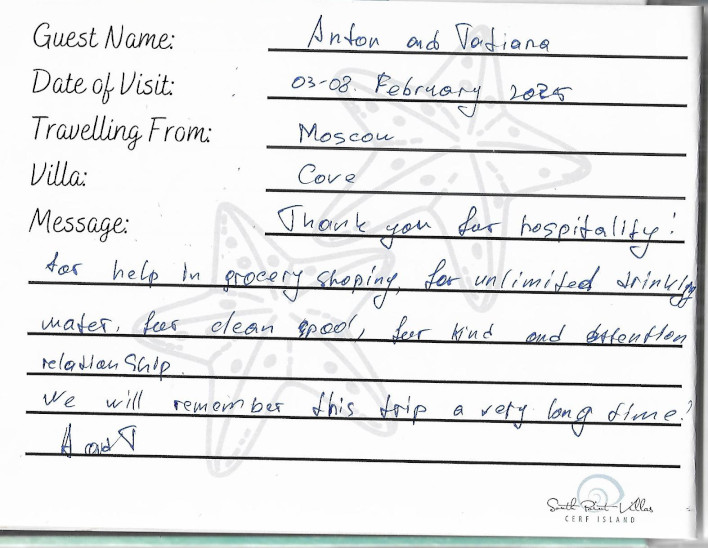 Guest Name: Anton and Tatiana
Date of Visit: 03-08. February 2025
Travelling From: Moscow
Villa: Cove
Message: Thank you for hospitality!
for help in grocery shoping, for unlimited drinking
water, for clean spool, for kind and attention
relationship.
We will remember this trip a very long time!
A and T
South Point Villas
CERF ISLAND